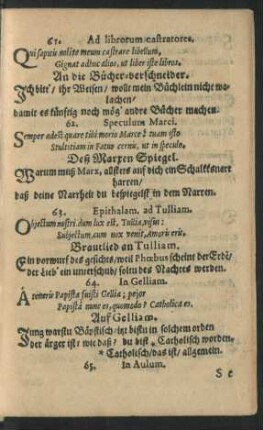 61. Ad librorum castratores.
Qui sapuis nolite meum castrare libellum,
Gignat adhuc alios, ut liber iste libros.
An die Bücher-verschneider.
Ich bitt/ ihr Weisen/ wollt mein Büchlein nicht wa-
lachen/
damit es künftig noch mög' andre Bücher machen.
62. Speculum Marci.
Semper adest quare tibi morio Marce? tuam isto
Stultitiam in Fatuo cernis, ut in speculo.
Deß Marxen Spiegel.
Warum muß Marx, allster auf dich ein Schalksnarr
harren/
daß deine Narrheit du bespiegelst in dem Narren.
63. Epithalam. ad Tulliam.
Objectum nostri dum lux est, Tullia, visus:
Subjectum, cum nox venit, amoris eris.
Brautlied an Tulliam.
Ein vorwurf des gesichts/ weil Phœbus scheint der Erd'/
der Lieb' ein unterschub/ solru des Nachtes werden.
64. In Gelliam.
A teneris Papista fuisti Gellia; pejor
Papista nunc es, quomodo? Catholica es.
Auf Gelliam.
Jung warstu Bäpstisch: itzt bistu in solchem orden
der ärger ist: wie daß/ du bist * Catholisch worden.
* Catholisch/ das ist/ allgemein.
65. In Aulum.
S e